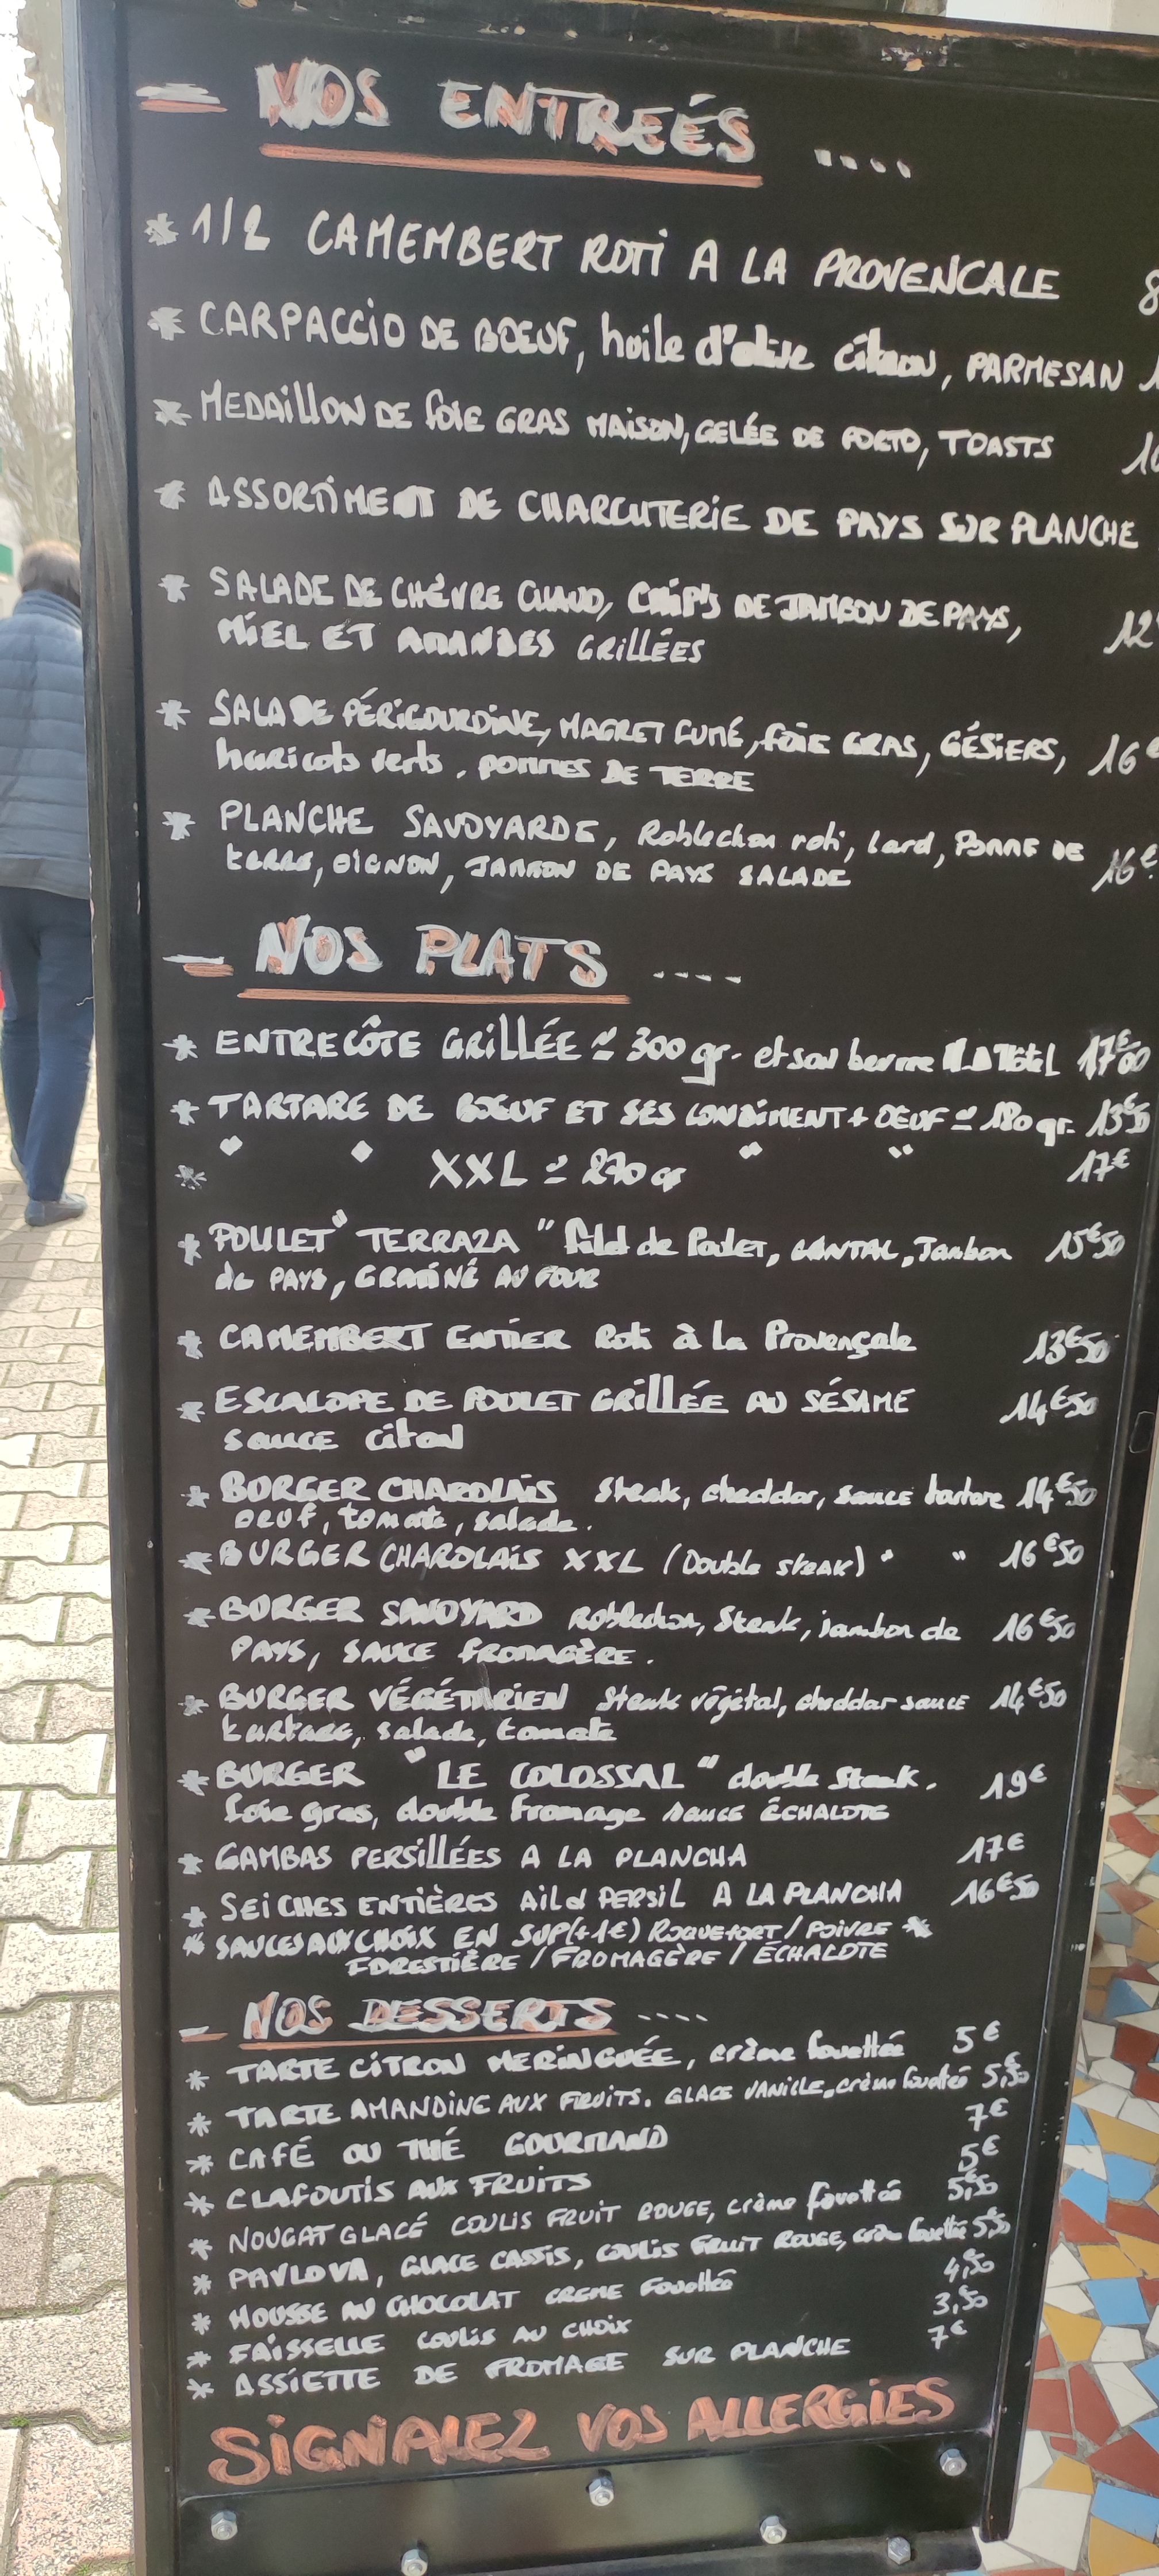 NOS ENTREÉS ....
* 1/2 CAMEMBERT ROTI A LA PROVENCALE 8
* CARPACCIO DE BOEUF, huile d'olive citron, PARMESAN 1
* MEDAILLON DE FOIE GRAS MAISON, GELÉE DE PORTO, TOASTS 10
* ASSORTIMENT DE CHARCUTERIE DE PAYS SUR PLANCHE
* SALADE DE CHÈVRE CHAUD, CHIP'S DE JAMBON DE PAYS, 12
MIEL ET AMANDES GRILLÉES
* SALADE PÉRIGOURDINE, MAGRET FUMÉ, FOIE GRAS, GÉSIERS, 16€
haricots verts, POMMES DE TERRE
* PLANCHE SAVOYARDE, Roblechon roti, lard, POMME DE
terre, OIGNON, JAMBON DE PAYS SALADE 16€
- NOS PLATS ....
* ENTRECÔTE GRILLÉE ≃ 300 gr. et son beurre 17€00
* TARTARE DE BOEUF ET SES CONDIMENT + OEUF ≃ 180 gr. 13€50
* " " XXL ≃ 270 gr " " 17€
* POULET "TERRAZA" filet de Poulet, CANTAL, Jambon 15€50
de PAYS, GRATINÉ AU FOUR
* CAMEMBERT ENTIER Roti à la Provençale 13€50
* ESCALOPE DE POULET GRILLÉE AU SÉSAME 14€50
SAUCE citron
* BURGER CHAROLAIS Steak, cheddar, sauce tartare 14€50
oeuf, tomate, salade.
* BURGER CHAROLAIS XXL (Double STEAK) " " 16€50
* BURGER SAVOYARD Roblechon, Steak, jambon de 16€50
PAYS, SAUCE FROMAGÈRE.
* BURGER VÉGÉTARIEN Steak végétal, cheddar sauce 14€50
tartare, salade, tomate
* BURGER "LE COLOSSAL" double steak. 19€
foie gras, double fromage sauce ÉCHALOTE
* GAMBAS PERSILLÉES A LA PLANCHA 17€
* SEICHES ENTIÈRES AIL et PERSIL A LA PLANCHA 16€50
* SAUCES AUX CHOIX EN SUP(+1€) ROQUEFORT / POIVRE *
FORESTIÈRE / FROMAGÈRE / ÉCHALOTE
- NOS DESSERTS ....
* TARTE CITRON MERINGUÉE, crème fouettée 5€
* TARTE AMANDINE AUX FRUITS. GLACE VANILLE, crème fouettée 5,50
* CAFÉ OU THÉ GOURMAND 7€
* CLAFOUTIS AUX FRUITS 5€
* NOUGAT GLACÉ COULIS FRUIT ROUGE, crème fouettée 5,50
* PAVLOVA, GLACE CASSIS, COULIS FRUIT ROUGE, crème fouettée 5,50
* MOUSSE AU CHOCOLAT CREME Fouettée 4,50
* FAISSELLE COULIS AU CHOIX 3,50
* ASSIETTE DE FROMAGE SUR PLANCHE 7€
SIGNALEZ VOS ALLERGIES